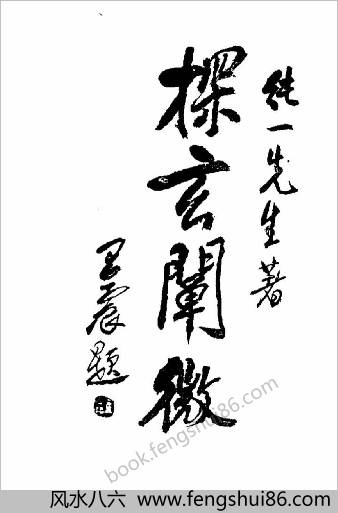 純一先生著
探玄闡微
王震題
book.fengshui86.com
风水八六 www.fengshui86.com